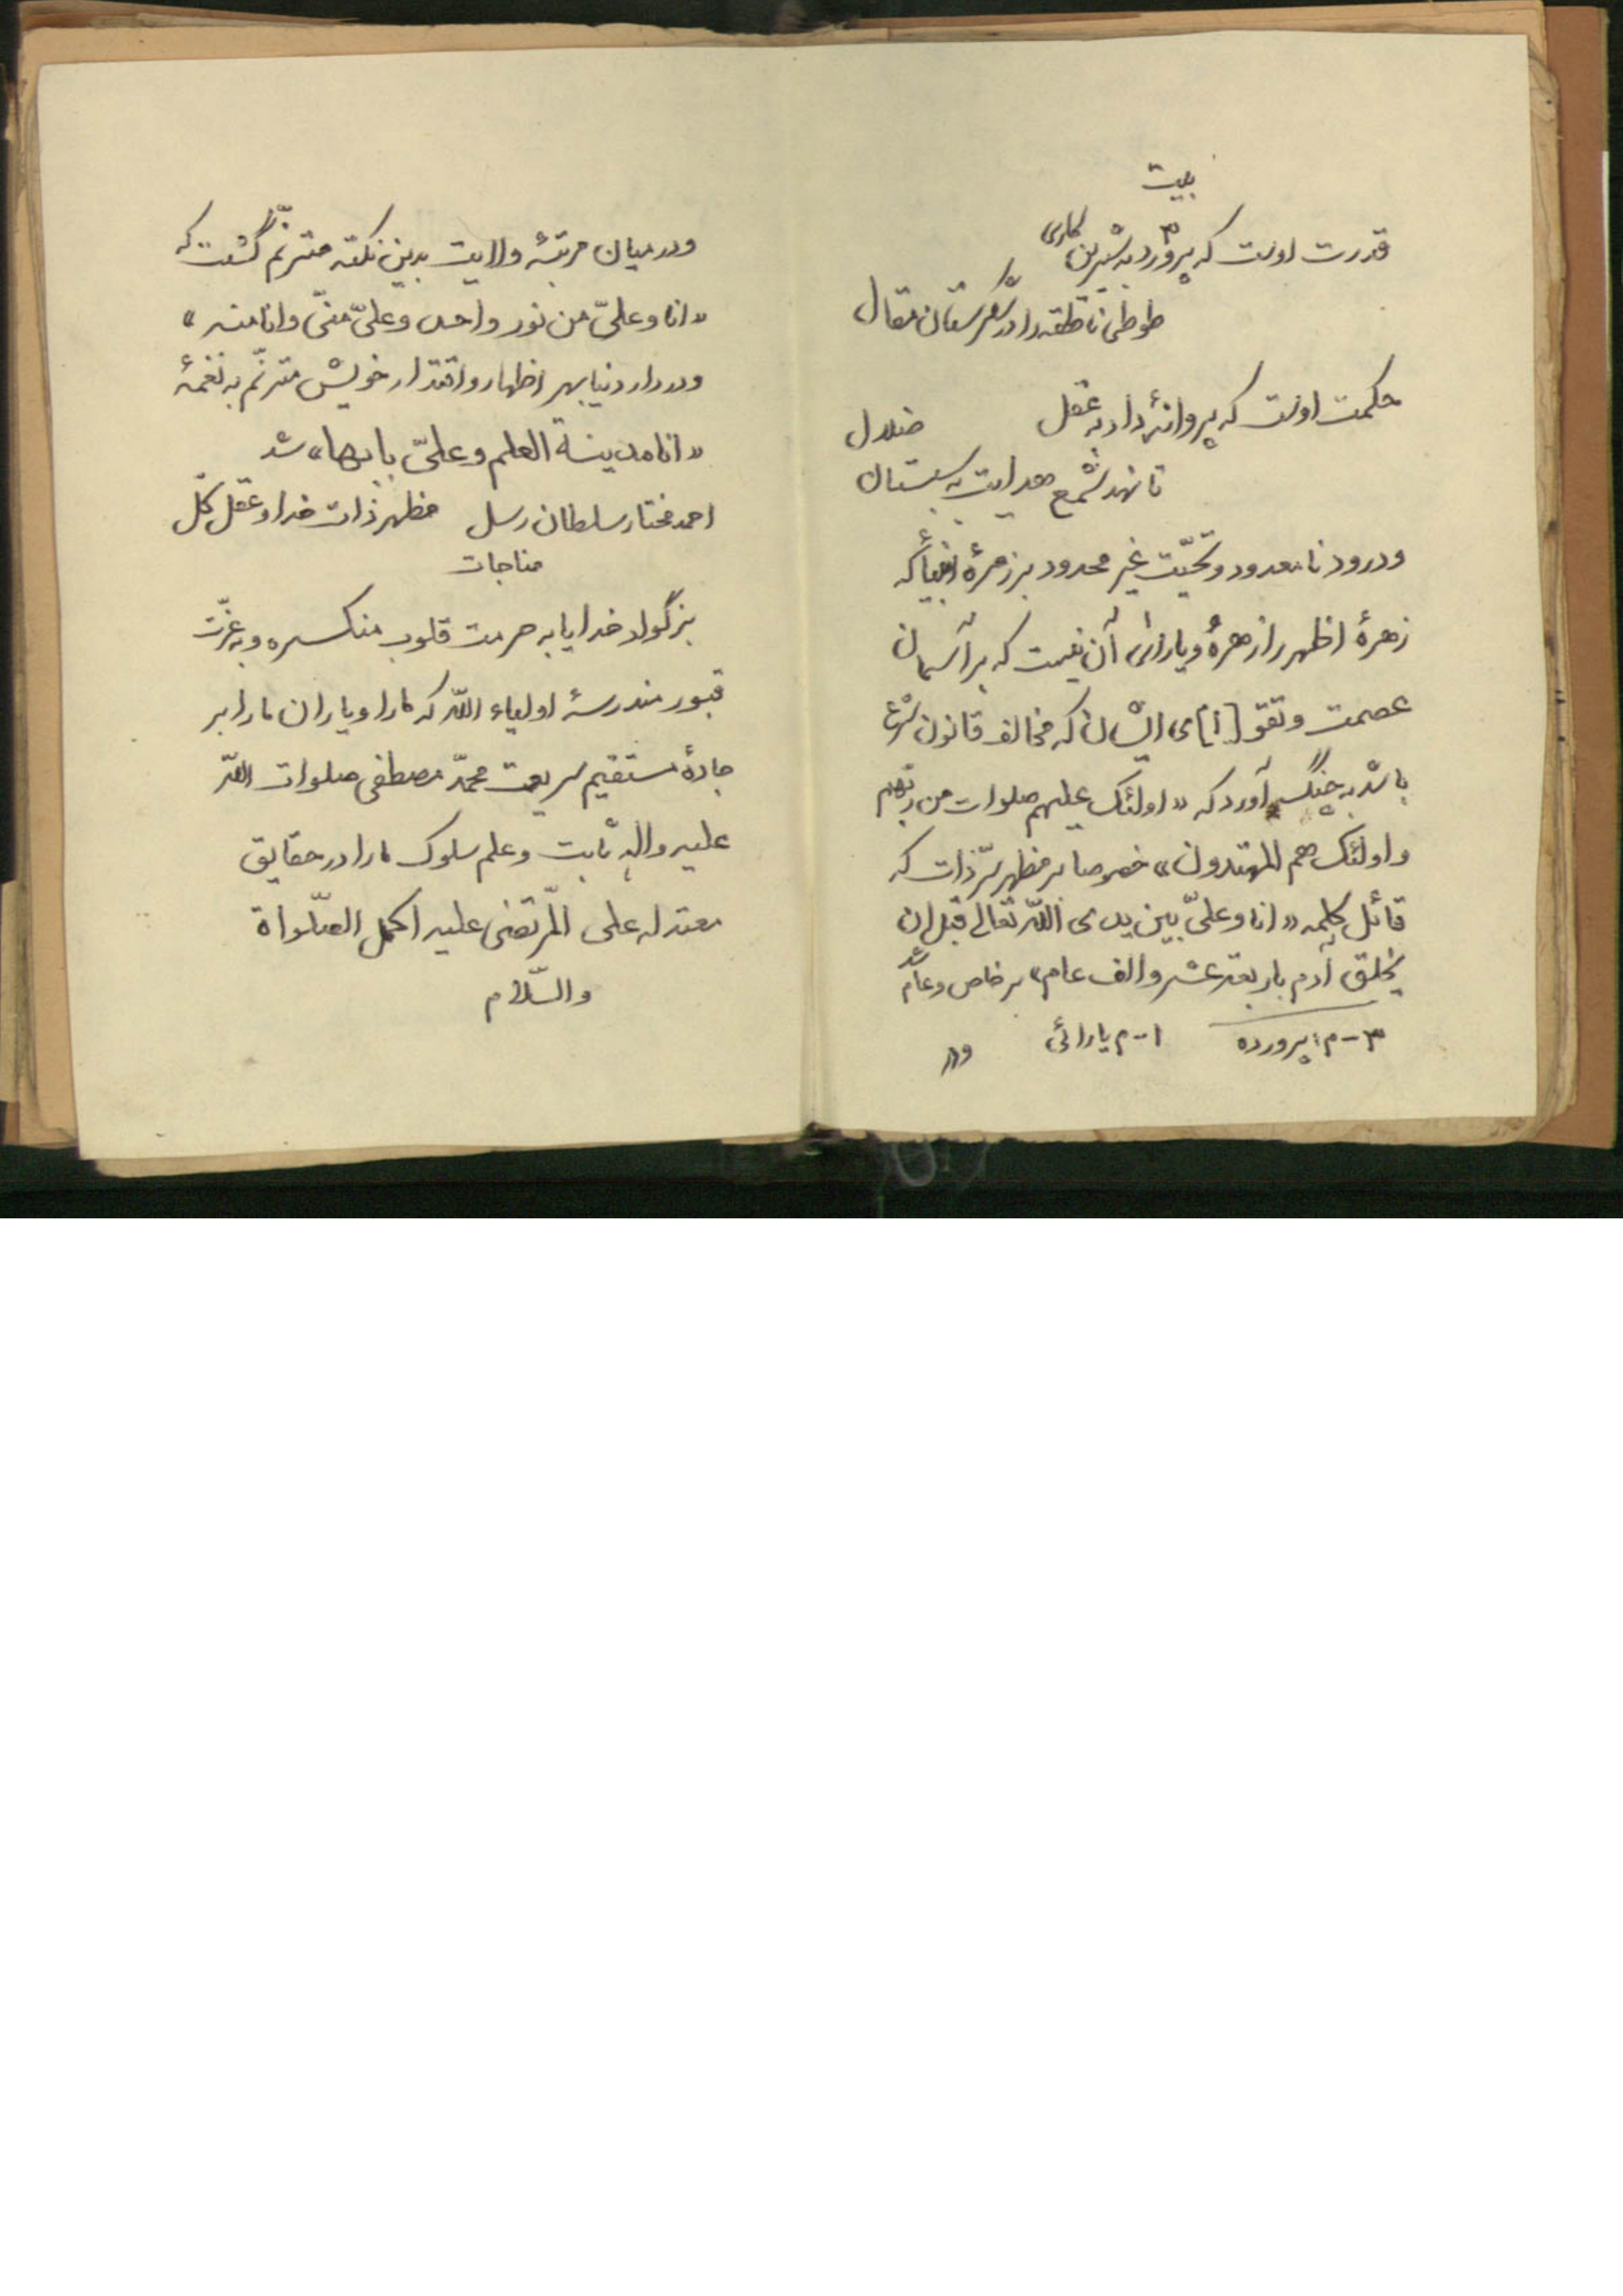 بیت
قدرت اوست که پرورد۳ به شیرین کاری
طوطی ناطقه را در شکرستان مقال
حکمت اوست که پروانهٔ داد به عقل
تا نهد شمع هدایت به شبستان ضلال
و درود نامعدود و تحیّت غیر محدود بر زمرهٔ انبیا که
زهرهٔ اظهر را زهرهٔ و یارائی۱ آن نیست که بر آسمان
عصمت و تقو[ا]ی ایشان که مخالف قانون شرع
باشد به چنگ آورد که «اولئک علیهم صلوات من ربّهم
و اولئک هم المهتدون» خصوصا بر مظهر سرّ ذات که
قائل کلمه «انا و علیّ بین یدی اللّه تعالی قبل ان
یخلق آدم باربعة عشر و الف عام» بر خاص و عام شد
۳-م: پرورده ۱-م یارائی
ودر
ودر میان مرتبهٔ ولایت بدین نکته مترنّم گشت که
«انا و علیّ من نور واحد و علیّ منّی و انا منه»
ودر دار دنیا بهر اظهار و اقتدار خویش مترنّم به نغمهٔ
«انا مدینة العلم و علیّ بابها» شد
احمد مختار سلطان رسل مظهر ذات خدا و عقل کلّ
مناجات
بزرگوار خدایا به حرمت قلوب منکسره و به عزّت
قبور مندرسهٔ اولیاء اللّه که ما را و یاران ما را بر
جادهٔ مستقیم شریعت محمّد مصطفی صلوات اللّه
علیه و آله ثابت و علم سلوک ما را در حقایق
معتدله علی المرتضی علیه اکمل الصّلواة
والسّلام